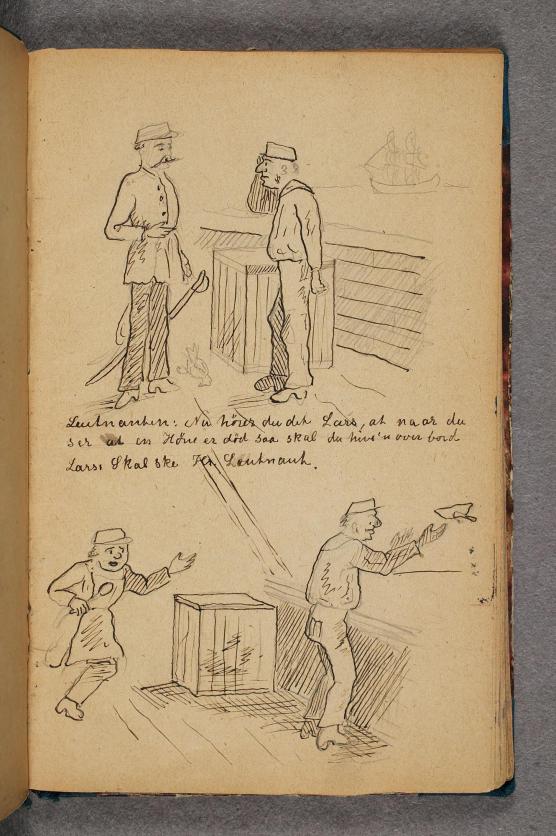 Leutnanten: Nu hörer du det Lars, at naar du
ser at en Höne er död saa skal du hive'n over bord
Lars: Skal ske Hr Leutnant.